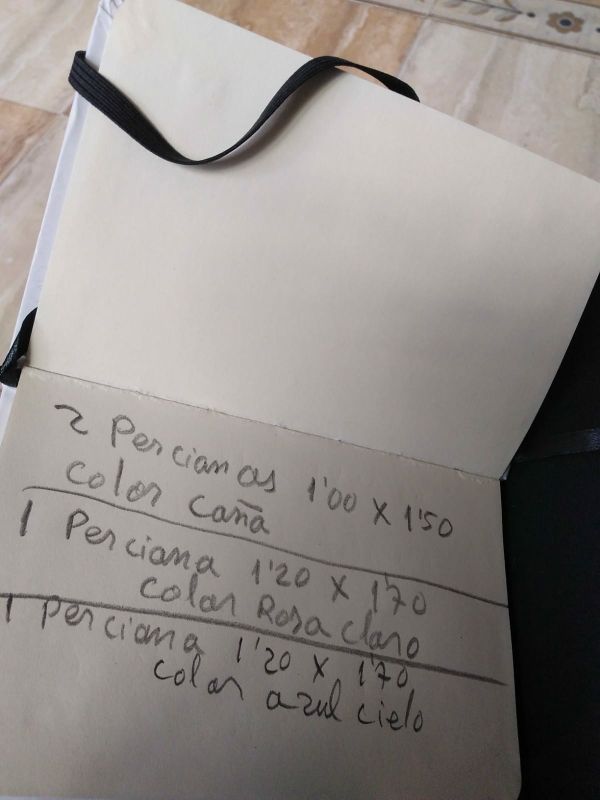 2 Percianas 1'00 X 1'50
color caña
1 Perciana 1'20 X 1'70
color Rosa claro
1 Perciana 1'20 X 1'70
color azul cielo